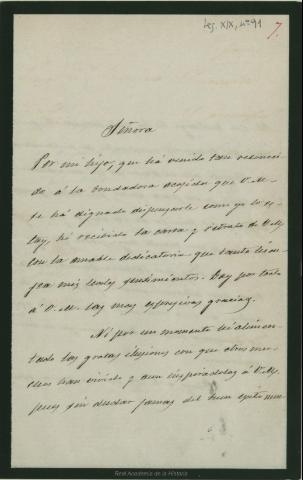 Leg. XIX, nº 91
7.
Señora
Por mi hijo, que há venido tan reconoci-
do á la bondadosa acogida que V. M.
se há dignado dispensarle como yo lo es-
toy, hé recibido la carta y retrato de V. M.
con la amable dedicatoria que tanto
mis leales sentimientos. Doy por todo
á V. M. las mas espresivas gracias.
Ni por un momento hé alimen-
tado las gratas ilusiones con que otros mu-
chos han vivido y aun inspirádolas á V. M.,
pues sin dudar jamas del buen
Real Academia de la Historia